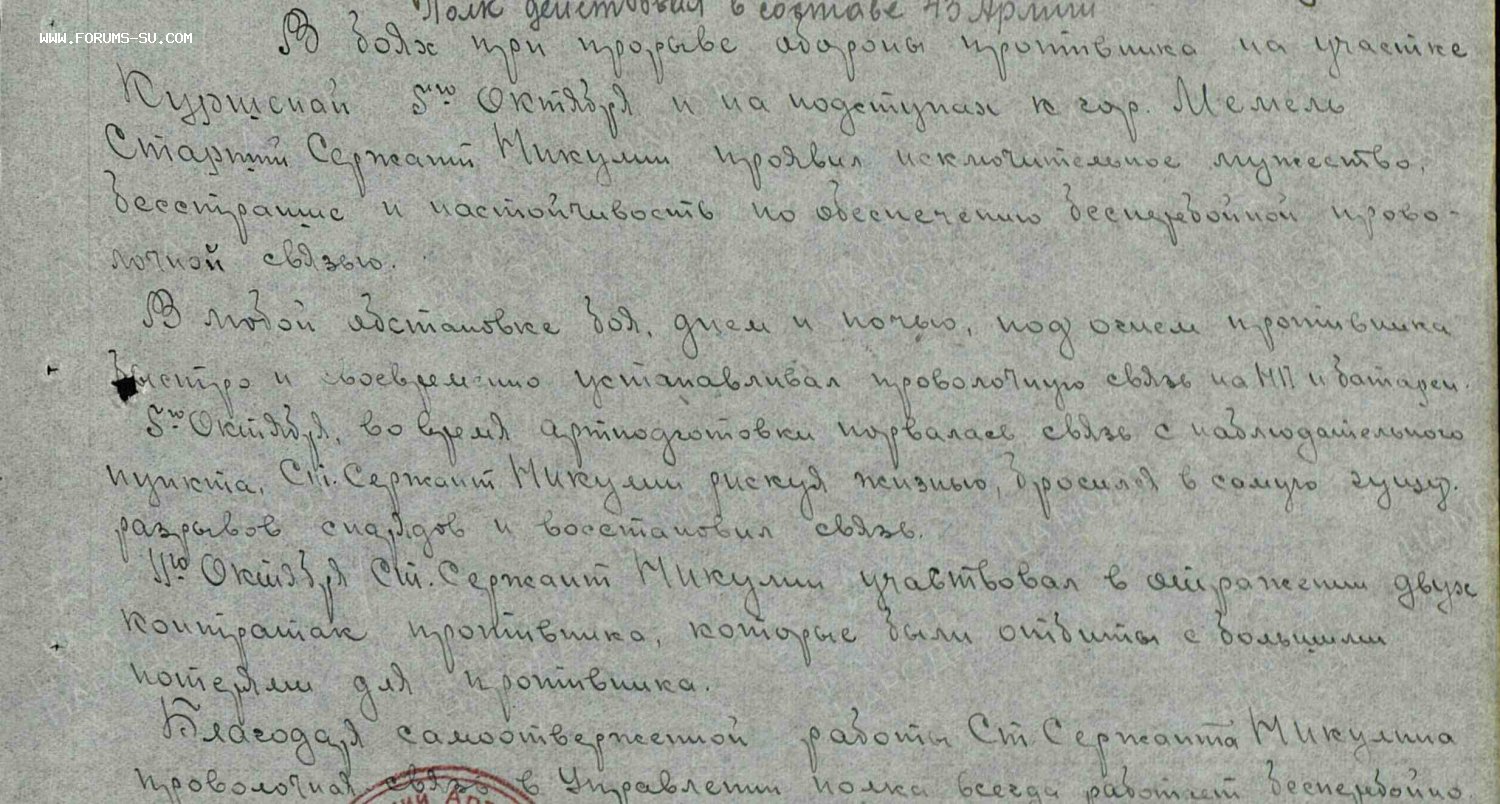 Полк действовал в составе 43 Армии
WWW.FORUMS-SU.COM
В боях при прорыве обороны противника на участке
Куршенай 5го Октября и на подступах к гор. Мемель
Старший Сержант Микулин проявил исключительное мужество,
бесстрашие и настойчивость по обеспечению бесперебойной прово-
лочной связью.
В любой обстановке боя, днем и ночью, под огнем противника
быстро и своевременно устанавливал проволочную связь на НП и батареи.
5го Октября, во время артподготовки порвалась связь с наблюдательного
пункта, Ст. Сержант Микулин рискуя жизнью, бросился в самую гущу.
разрывов снарядов и восстановил связь.
Октября Ст. Сержант Микулин участвовал в отражении двух
контратак противника, которые были отбиты с большими
потерями для противника.
Благодаря самоотверженной работы Ст. Сержанта Микулина
проволочная связь в Управлении полка всегда работает бесперебойно.